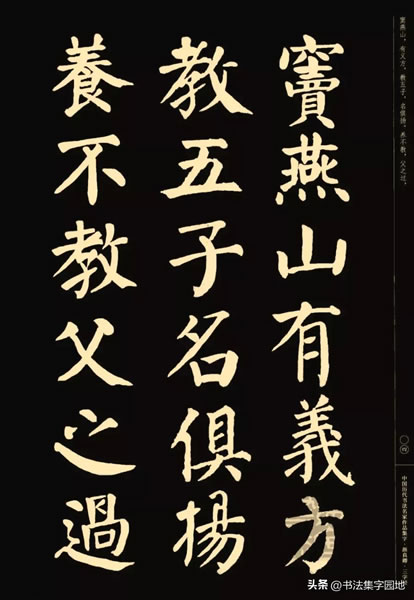 窦燕山，有义方，教五子，名俱扬。养不教，父之过。
竇燕山有義方
教五子名俱揚
養不教父之過
〇四
中国历代书法名家作品集字·
三字
头条 @书法集字园地